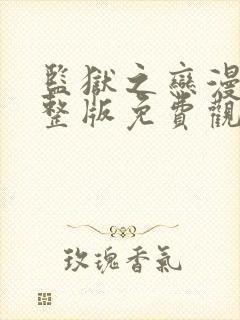 監獄之戀漫
整版免費觀
玫瑰香氣